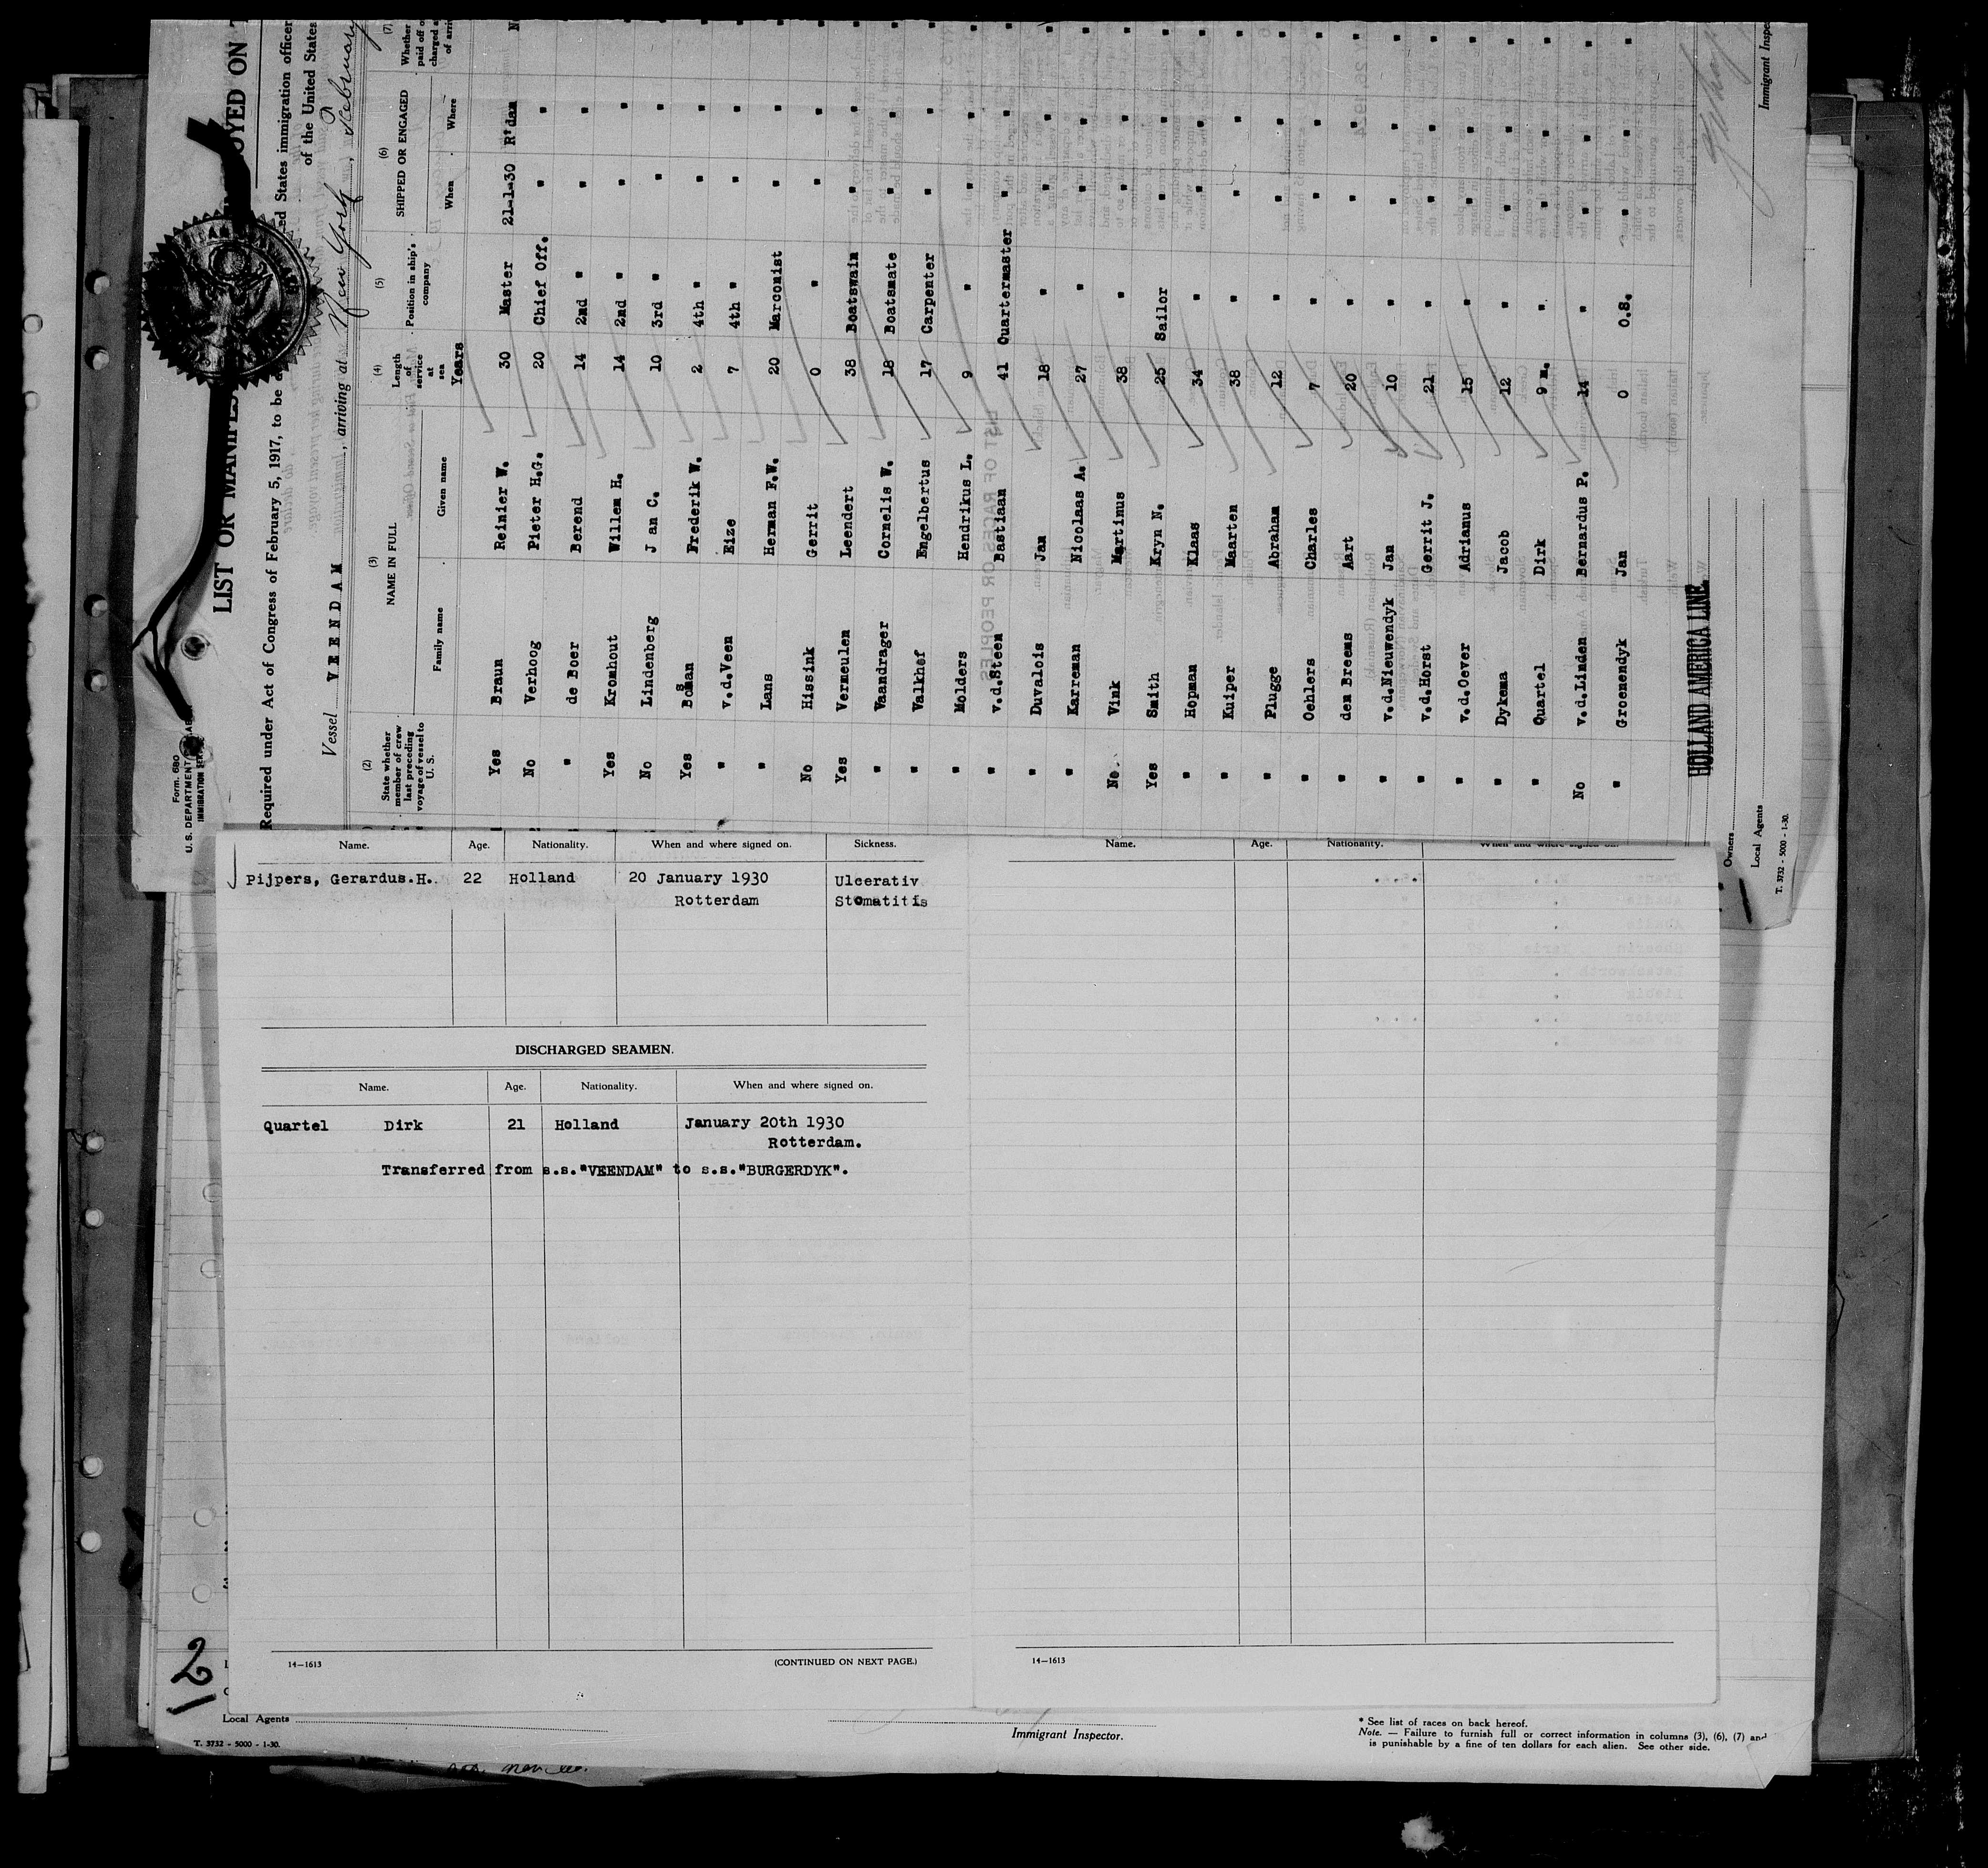 LIST OR MANIFEST
OYED ON
Required under Act of Congress of February 5, 1917, to be d
ed States immigration officer
of the United States
Vessel VEENDAM, arriving at New York, February
Form 680
U. S. DEPARTMENT
IMMIGRATION SERVICE
(2) State whether member of crew last preceding voyage of vessel to U. S.
(3) NAME IN FULL
Family name Given name
(4) Length of service at sea
Years
(5) Position in ship's company
(6) SHIPPED OR ENGAGED
When Where
(7) Whether
Yes Braun Reinier W. 30 Master 21-1-30 R'dam
No Verhoog Pieter H.G. 20 Chief Off. " "
" de Boer Berend 14 2nd " " "
Yes Kromhout Willem H. 14 2nd " " "
No Lindenberg J an C. 10 3rd " " "
Yes Bosman Frederik W. 2 4th " " "
" v.d.Veen Eize 7 4th " " "
" Lans Herman F.W. 20 Marconist " "
No Hissink Gerrit 0 " " "
Yes Vermeulen Leendert 38 Boatswain " "
" Vaandrager Cornelis W. 18 Boatsmate " "
" Valkhof Engelbertus 17 Carpenter " "
" Molders Hendrikus L. 9 " " "
" v.d.Steen Bastiaan 41 Quartermaster " "
" Duvalois Jan 18 " " "
" Karreman Nicolaas A. 27 " " "
No. Vink Martinus 38 " " "
Yes Smith Kryn N. 25 Sailor " "
" Hopman Klaas 34 " " "
" Kuiper Maarten 38 " " "
" Plugge Abraham 12 " " "
" Oehlers Charles 7 " " "
" den Breems Aart 20 " " "
" v.d.Nieuwendyk Jan 10 " " "
" v.d.Horst Gerrit J. 21 " " "
" v.d.Oever Adrianus 15 " " "
" Dykema Jacob 12 " " "
" Quartel Dirk 9 m. " " "
No v.d.Linden Bernardus P. 14 " " "
" Groenendyk Jan 0 O.S. " "
HOLLAND AMERICA LINE.
Owners
Local Agents
T. 3732 - 5000 - 1-30.
Immigrant Inspe
Name. Age. Nationality. When and where signed on. Sickness.
Pijpers, Gerardus.H. 22 Holland 20 January 1930 Ulcerativ
Rotterdam Stomatitis
DISCHARGED SEAMEN.
Name. Age. Nationality. When and where signed on.
Quartel Dirk 21 Holland January 20th 1930
Rotterdam.
Transferred from s.s."VEENDAM" to s.s."BURGERDYK".
14—1613 (CONTINUED ON NEXT PAGE.)
Name. Age. Nationality. When and where signed on.
14—1613
2
Local Agents
T. 3732 - 5000 - 1-30.
Immigrant Inspector.
* See list of races on back hereof.
Note. — Failure to furnish full or correct information in columns (3), (6), (7) and
is punishable by a fine of ten dollars for each alien. See other side.